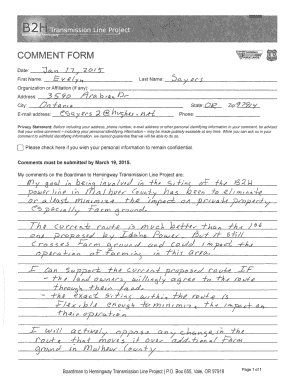 B2H Transmission Line Project
COMMENT FORM
Date: Jan 17, 2015
First Name: Evelyn Last Name: Sayers
Organization or Affiliation (if any):
Address: 3590 Arabian Dr
City: Ontario State: OR Zip: 97914
E-mail address: esayers2@hughes.net Phone:
Privacy Statement: Before including your address, phone number, e-mail address or other personal identifying information in your comment, be advised
that your entire comment – including your personal identifying information – may be made publicly available at any time. While you can ask us in your
comment to withhold identifying information, we cannot guarantee that we will be able to do so.
Please check here if you wish your personal information to remain confidential.
Comments must be submitted by March 19, 2015.
My comments on the Boardman to Hemingway Transmission Line Project are:
My goal in being involved in the siting of the B2H
powerline in Malheur County has been to eliminate
or a least minimize the impact on private property
especially farm ground.
The current route is much better than the
one proposed by Idaho Power. But it still
crosses farm ground and could impact the
operation of farming in this area.
I can support the current proposed route IF
- the land owners, willingly agree to the route
through their land.
- the exact siting within the route is
flexible enough to minimize the impact on
their operation
I will actively oppose any change in the
route that moves it over additional farm
ground in Malheur County.
Boardman to Hemingway Transmission Line Project | P.O. Box 655, Vale, OR 97918
Page 1 of 1